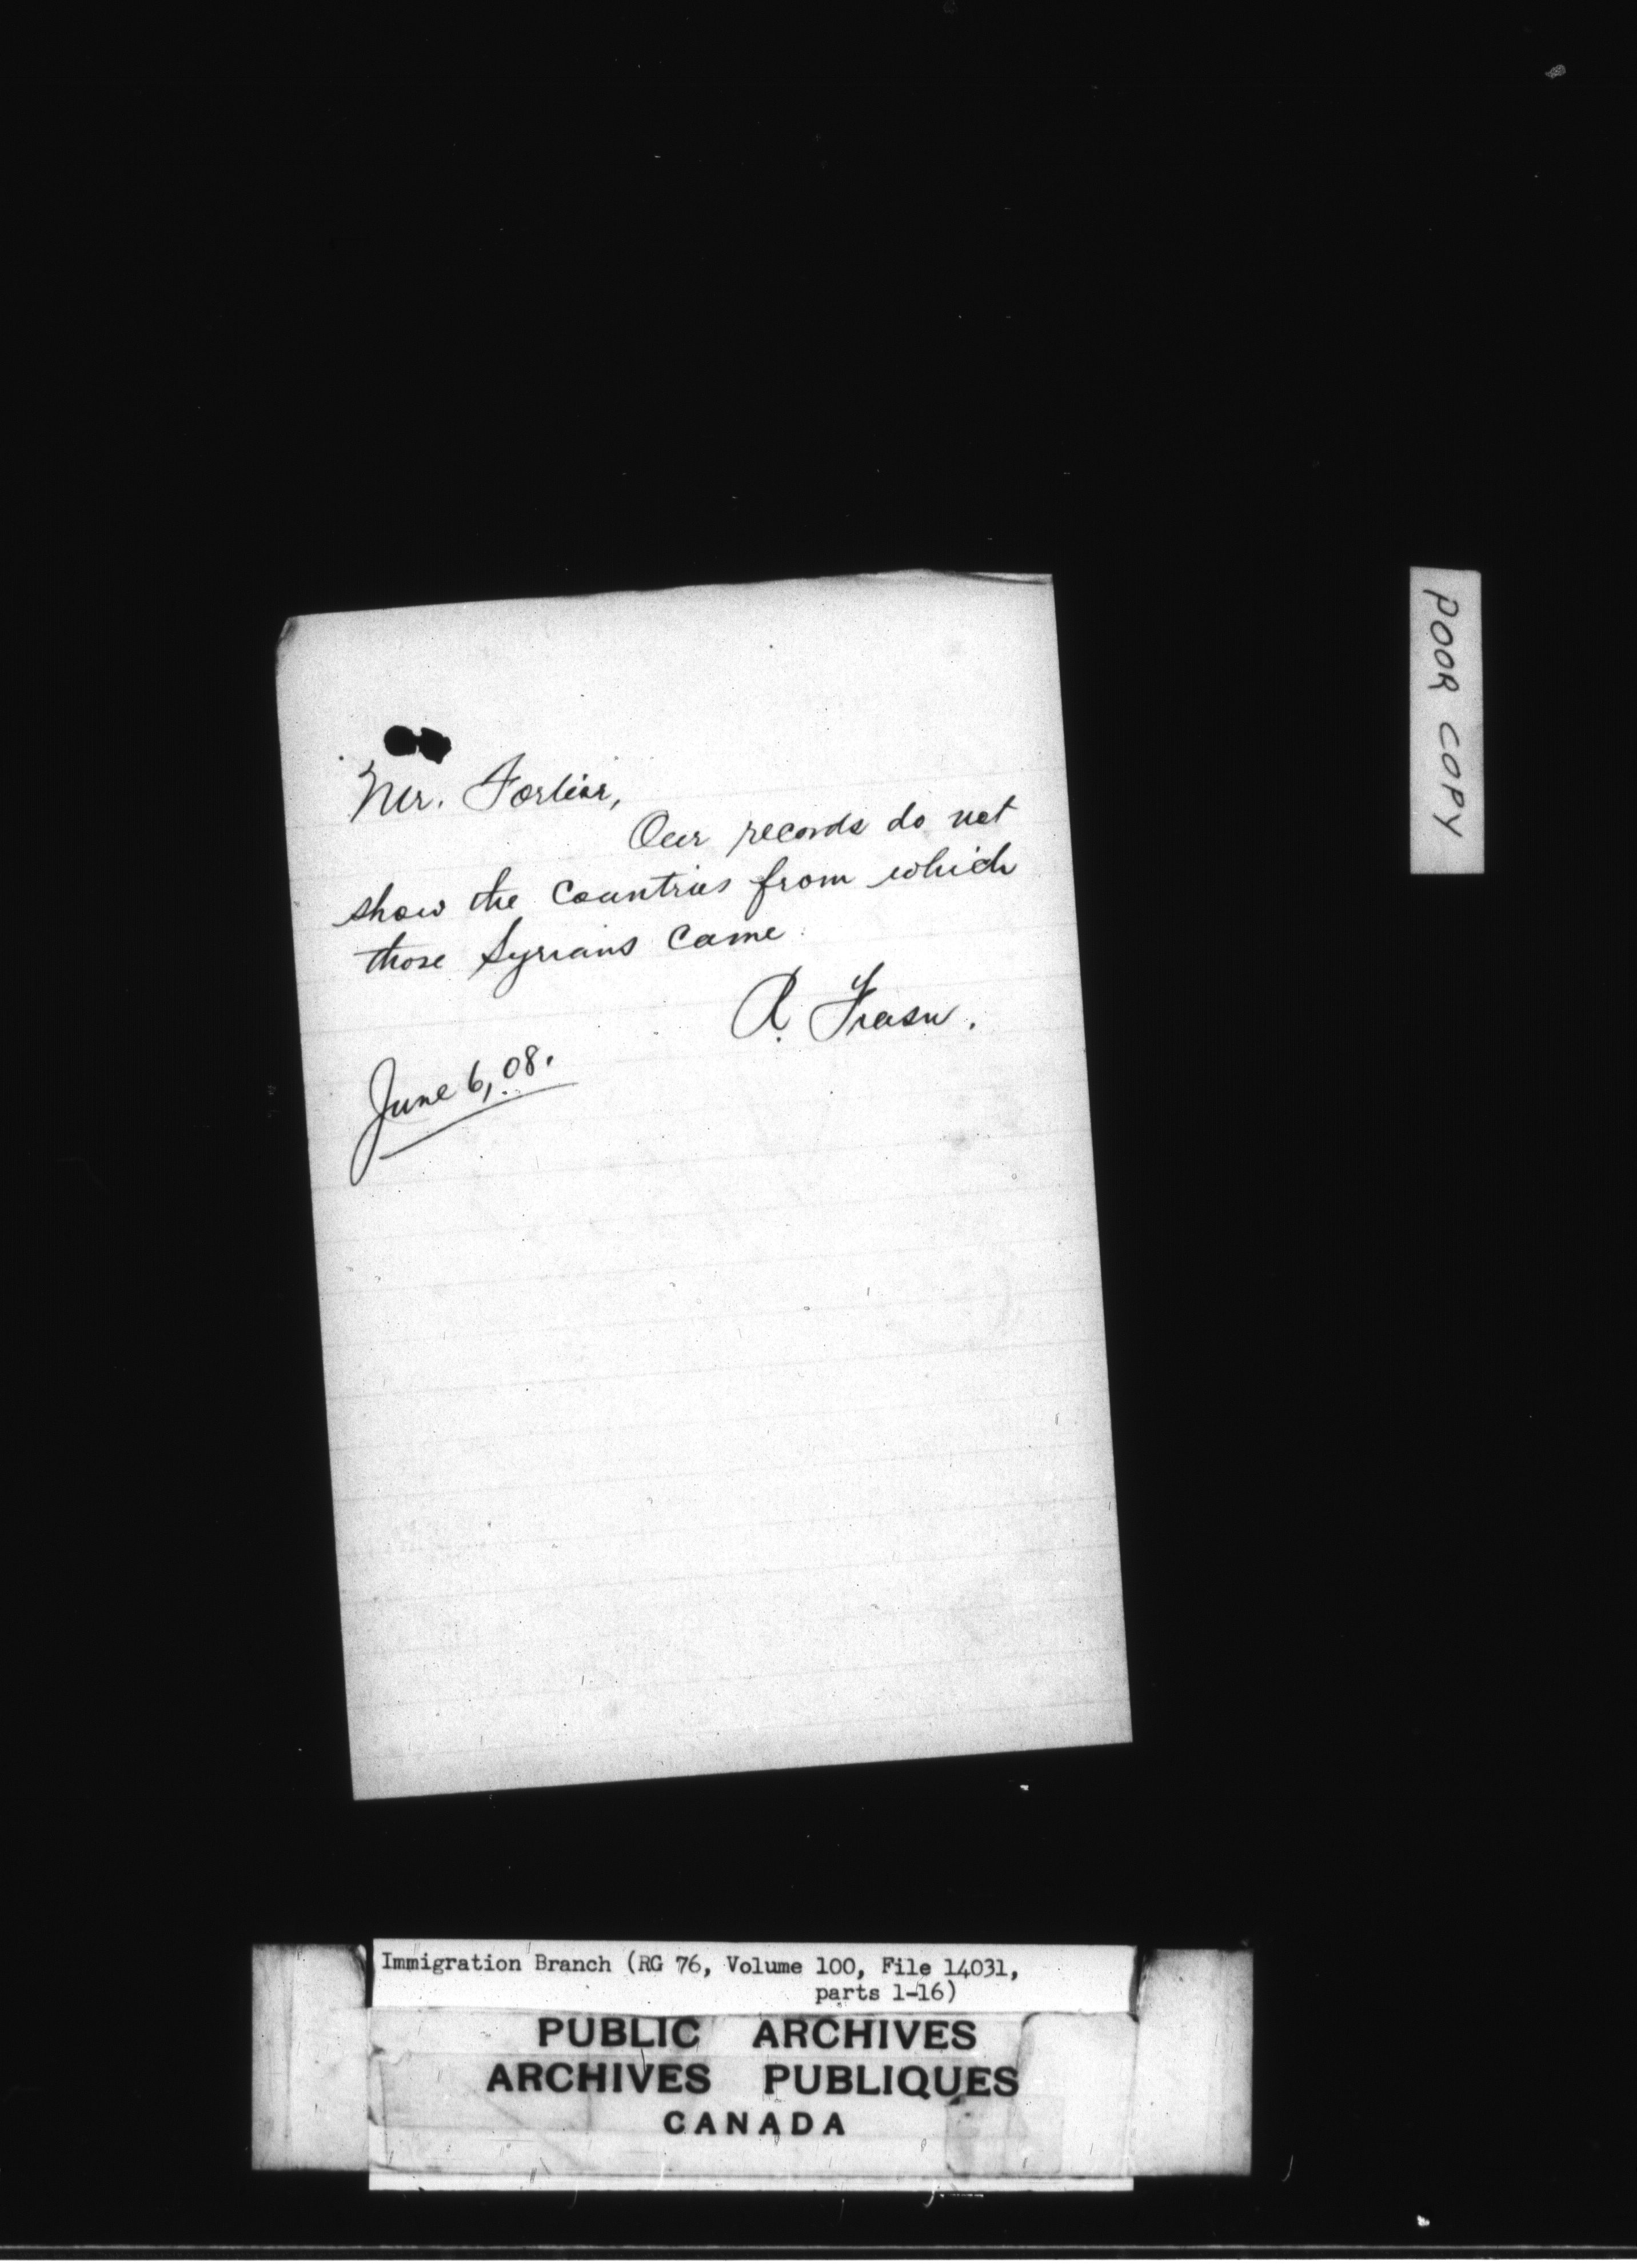 Mr. Fortier,
Our records do not
show the Countries from which
those Syrians Came.
A. Fraser.
June 6, 08.
POOR COPY
Immigration Branch (RG 76, Volume 100, File 14031,
parts 1-16)
PUBLIC ARCHIVES
ARCHIVES PUBLIQUES
CANADA